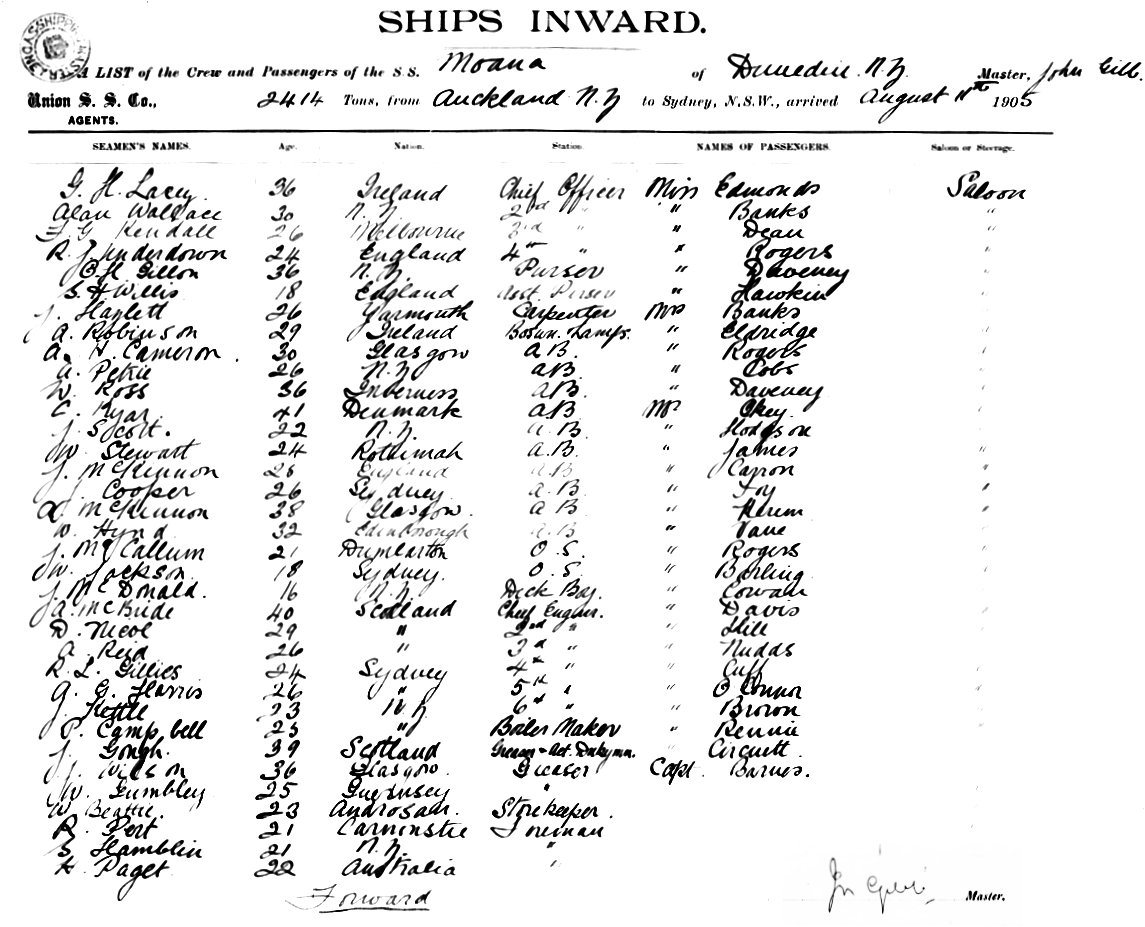 SHIPS INWARD.
A LIST of the Crew and Passengers of the S.S. Moana of Dunedin. N.Z. Master, John Gibb.
Union S. S. Co., 2414 Tons, from Auckland N.Z to Sydney, N.S.W., arrived August 11th 1905
AGENTS.
SEAMEN'S NAMES. Age. Nation. Station. NAMES OF PASSENGERS. Saloon or Steerage.
G. H. Lacey. 36 Ireland Chief Officer Miss Edmonds Saloon
Alan Wallace 30 N.Z. 2nd " " Banks "
F. G. Kendall 26 Melbourne 3rd " " Dean
R. J. Underdown 24 England 4th " " Rogers
C. H. Gillon 36 N.Z. Purser " Daveney
S. H Willis 18 England Asst. Purser " Hawkin
J. Haylett 26 Yarmouth Carpenter Mrs Banks
A. Robinson 29 Ireland Bosun. Lamps. " Eldridge
A. H. Cameron. 30 Glasgow A B. " Rogers
A. Petrie 26 N.Z AB. " Cobs
W. Ross 36 Inverness AB. " Daveney
C. 41 Denmark AB. Mr Okey.
J. Scott. 22 N.Z. A.B. " Hodgson
W. Stewart 24 Rothimah A.B. " James
J. McKinnon 26 England A.B " Carron
Cooper 26 Sydney. A.B. " Foy
McKinnon 38 Glasgow. A B. "
W. Hynd 32 Edinborough A.B " Vane
J. McCallum 21 Dumbarton O.S. " Rogers
W. Jackson. 18 Sydney. O.S. " Barling
J. McDonald. 16 N.Z. Dick Boy. " Cowan
A. McBride 40 Scotland Chief Engnr. " Davis
D. Nicol 29 " 2nd " " Hill
A. Reid 26 " 3rd " " Nudds
R. L. Gillies 24 Sydney 4th " " Cuff
G. G. Harris 26 " 5th " " O'Connor
J. Kettle 23 N Z 6th " " Brown
Campbell 23 " Boiler Maker " Rennie
J. Gough. 39 Scotland Greaser & Act. Dnkymn. "
J. Wilson 36 Glasgow. Greaser Capt. Barnes.
W. Gumbley 25 Guernsey "
W. Beattie. 23 Storekeeper.
R. Port 21 Foreman
S. Hamblin 21 N.Z. "
H. Paget 22 Australia "
Forward
Jn Gibb Master.